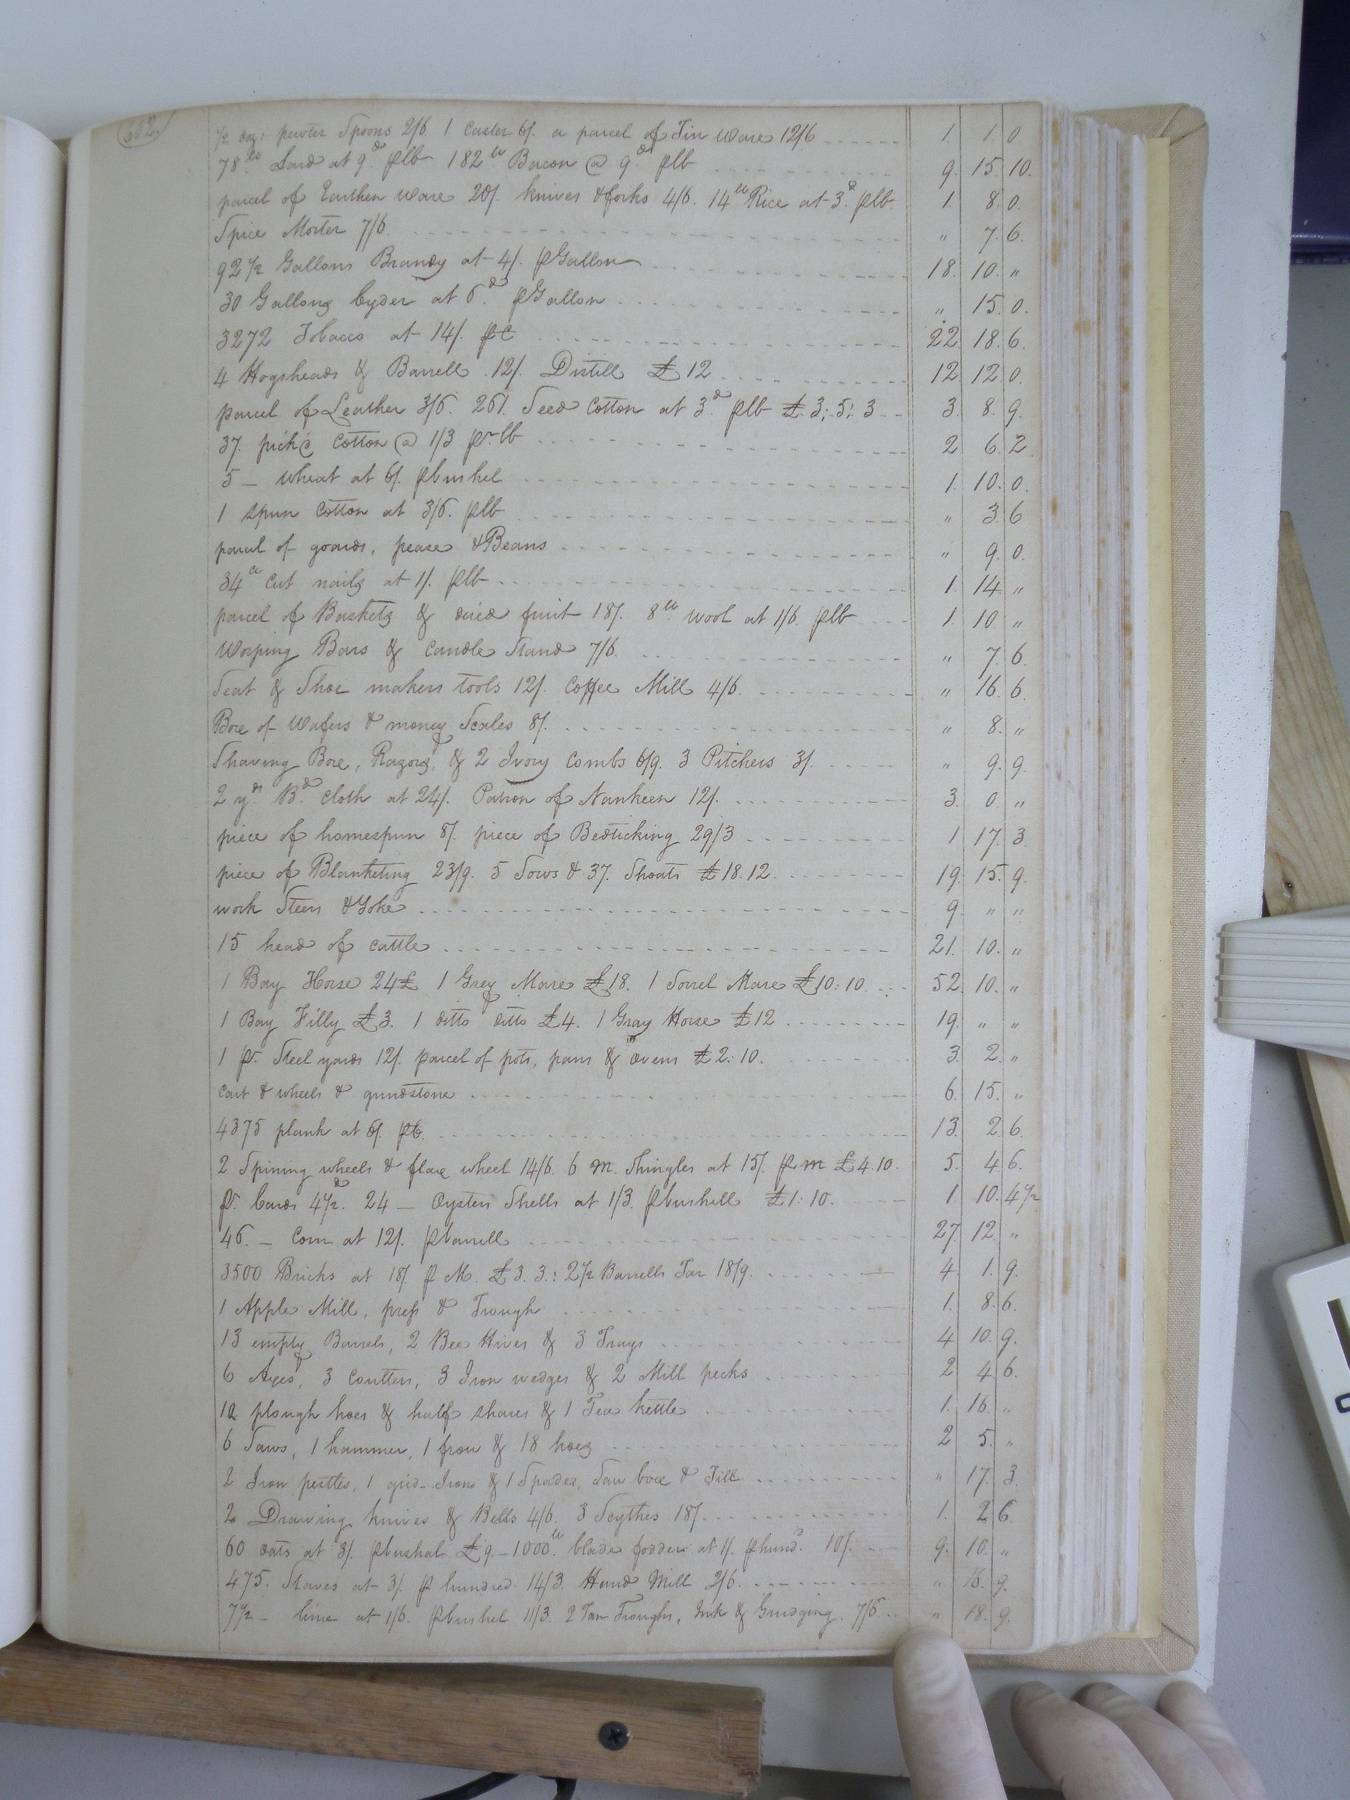 662
1/2 doz: pewter Spoons 2/6. 1 Caster 6/. a parcel of Tin Ware 12/6 1 1 0
78 lb Lard at 9d. plb 182 lb Bacon @ 9d plb 9. 15. 10.
parcel of Earthen ware 20/. knives & forks 4/6. 14 lb Rice at 3d. plb. 1. 8. 0.
Spice Morter 7/6. " 7. 6.
92 1/2 Gallons Brandy at 4/. pGallon 18. 10. "
30 Gallons Cyder at 6d. pGallon " 15. 0.
3272 Tobacco at 14/. pC 22. 18. 6.
4 Hogsheads & Barrell 12/. Distill £12 12. 12. 0.
parcel of Leather 3/6. 261. Seed Cotton at 3d plb £3:5:3 3. 8. 9.
37. pick'd Cotton @ 1/3 pr lb 2 6. 2
5 - wheat at 6/. pbushel 1. 10. 0.
1 spun Cotton at 3/6. plb " 3. 6
parcel of goards, pease & Beans " 9. 0.
34 lb cut nails at 1/. plb 1. 14 "
parcel of Baskets & dried fruit 18/. 8 lb wool at 1/6. plb 1. 10 "
Worping Bars & Candle Stand 7/6. " 7. 6.
Seat & Shoe makers tools 12/. Coffee Mill 4/6. " 16. 6.
Box of Wafers & money Scales 8/. " 8. "
Shaving Box, Razors, & 2 Ivory Combs 6/9. 3 Pitchers 3/. " 9. 9.
2 yds Bd. Cloth at 24/. Patron of Nankeen 12/. 3. 0. "
piece of homespun 8/. piece of Bedticking 29/3 1 17. 3.
piece of Blanketing 23/9. 5 Sows & 37. Shoats £18.12. 19. 15. 9.
work Steers & Yoke 9. " "
15 head of cattle 21. 10. "
1 Bay Horse 24£ 1 Grey Mare £18. 1 Sorrel Mare £10:10 52. 10. "
1 Bay Filly £3. 1 ditto ditto £4. 1 Gray Horse £12 19. " "
1 pr. Steel yards 12/. parcel of pots, pans & ovens £2:10. 3. 2. "
Cart & wheels & grindstone 6. 15. "
4375 plank at 6/. pC. 13. 2. 6.
2 Spining wheels & flax wheel 14/6. 6 m. Shingles at 15/. p m £4.10. 5. 4. 6.
pr. Cards 4 1/2d. 24 - Oysters Shells at 1/3. pbushell £1:10. 1 10. 4 1/2
46. - Corn at 12/. pbarrell 27. 12. "
3500 Bricks at 18/. p M. £3.3.: 2 1/2 Barrells Tar 18/9. 4. 1. 9.
1 Apple Mill, press & Trough 1. 8. 6.
13 empty Barrels, 2 Bee Hives & 3 Trays 4 10. 9.
6 Axes, 3 Coulters, 3 Iron wedges & 2 Mill pecks 2 4 6.
12 plough hoes & half shares & 1 Tea kettle 1. 16. "
6 Saws, 1 hammer, 1 frow & 18 hoes 2 5. "
2 Iron pestles, 1 grid-Iron & 1 Spades, Saw box & Till " 17. 3.
2 Drawing knives & Bells 4/6. 3 Scythes 18/. 1. 2 6.
60 oats at 3/. pbushel £9 - 1000 lb. blade fodder at 1/. phund. 10/. 9. 10. "
475. Staves at 3/. p hundred 14/3. Hand Mill 2/6. " 16. 9.
7 1/2 - lime at 1/6. pbushel 11/3. 2 Tan Troughs, Ink & 7/6. " 18. 9.